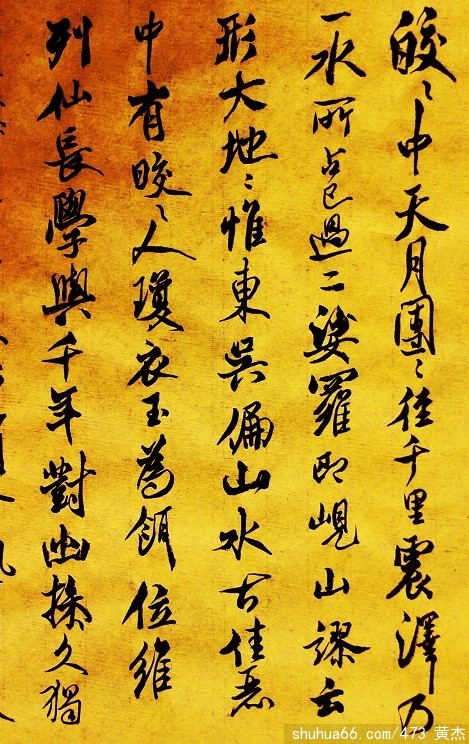 皎〻中天月團〻徑千里震澤乃
一水所占已過二娑羅即峴山謬云
形大地〻惟東吳偏山水古佳麗
中有皎〻人瓊衣玉為餌位維
列仙長學與千年對幽操久獨
shuhua66.com/473 黄杰